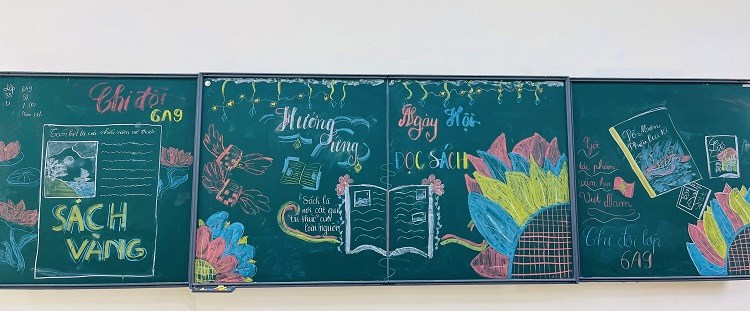 Lớp 6A9
SS
V
Chi đội
6A9
SÁCH
VÀNG
Hưởng
ứng
Sách là
nơi cất giữ
tri thức của
loài người
Ngày Hội
ĐỌC SÁCH
Dế Mèn
Phiêu lưu kí
Tác phẩm
văn học
Việt Nam
Chi đội lớp
6A9